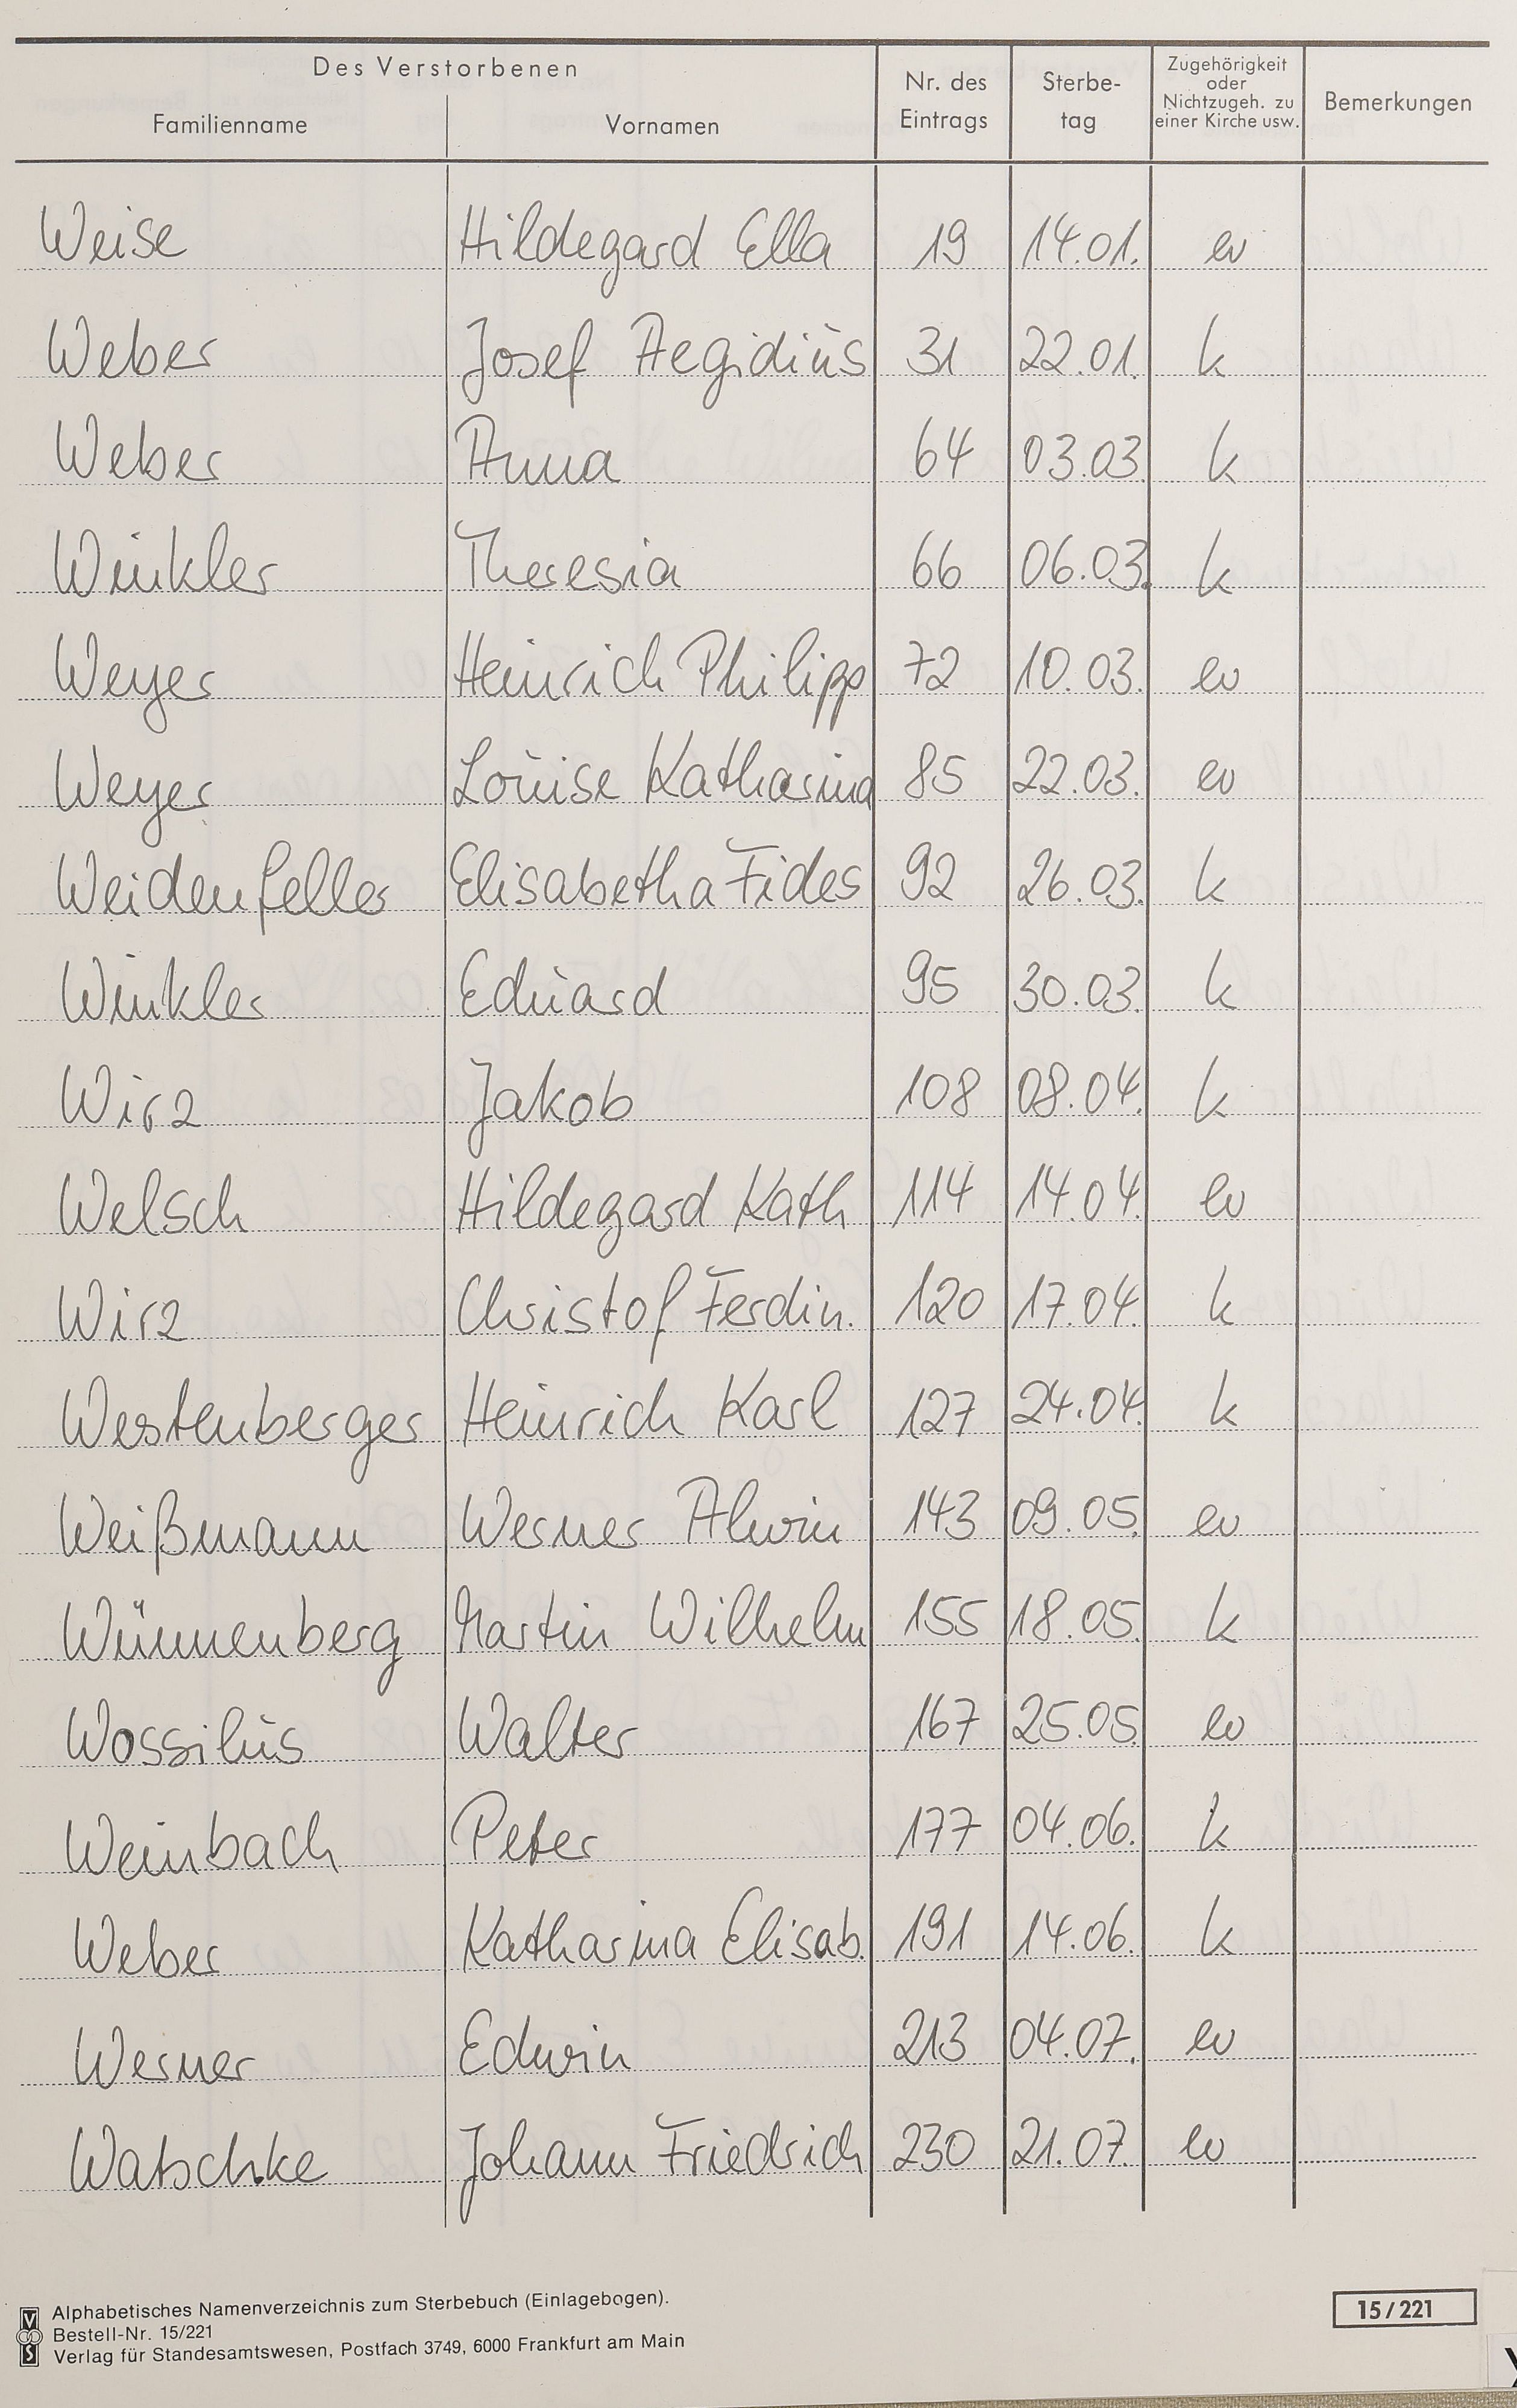 Des Verstorbenen
Familienname Vornamen Nr. des Eintrags Sterbe- tag Zugehörigkeit oder Nichtzugeh. zu einer Kirche usw. Bemerkungen
Weise Hildegard Ella 19 14.01. ev
Weber Josef Aegidius 31 22.01. k
Weber Anna 64 03.03. k
Winkler Theresia 66 06.03. k
Weyer Heinrich Philipp 72 10.03. ev
Weyer Louise Katharina 85 22.03. ev
Weidenfeller Elisabetha Fides 92 26.03. k
Winkler Eduard 95 30.03. k
Wirz Jakob 108 08.04. k
Welsch Hildegard Kath 114 14.04. ev
Wirz Christof Ferdin. 120 17.04. k
Westenberger Heinrich Karl 127 24.04. k
Weißmann Werner Alwin 143 09.05. ev
Wünnenberg Martin Wilhelm 155 18.05. k
Wossilus Walter 167 25.05. ev
Weinbach Peter 177 04.06. k
Weber Katharina Elisab. 191 14.06. k
Werner Edwin 213 04.07. ev
Watschke Johann Friedrich 230 21.07. ev
Alphabetisches Namenverzeichnis zum Sterbebuch (Einlagebogen).
Bestell-Nr. 15/221
Verlag für Standesamtswesen, Postfach 3749, 6000 Frankfurt am Main
15/221